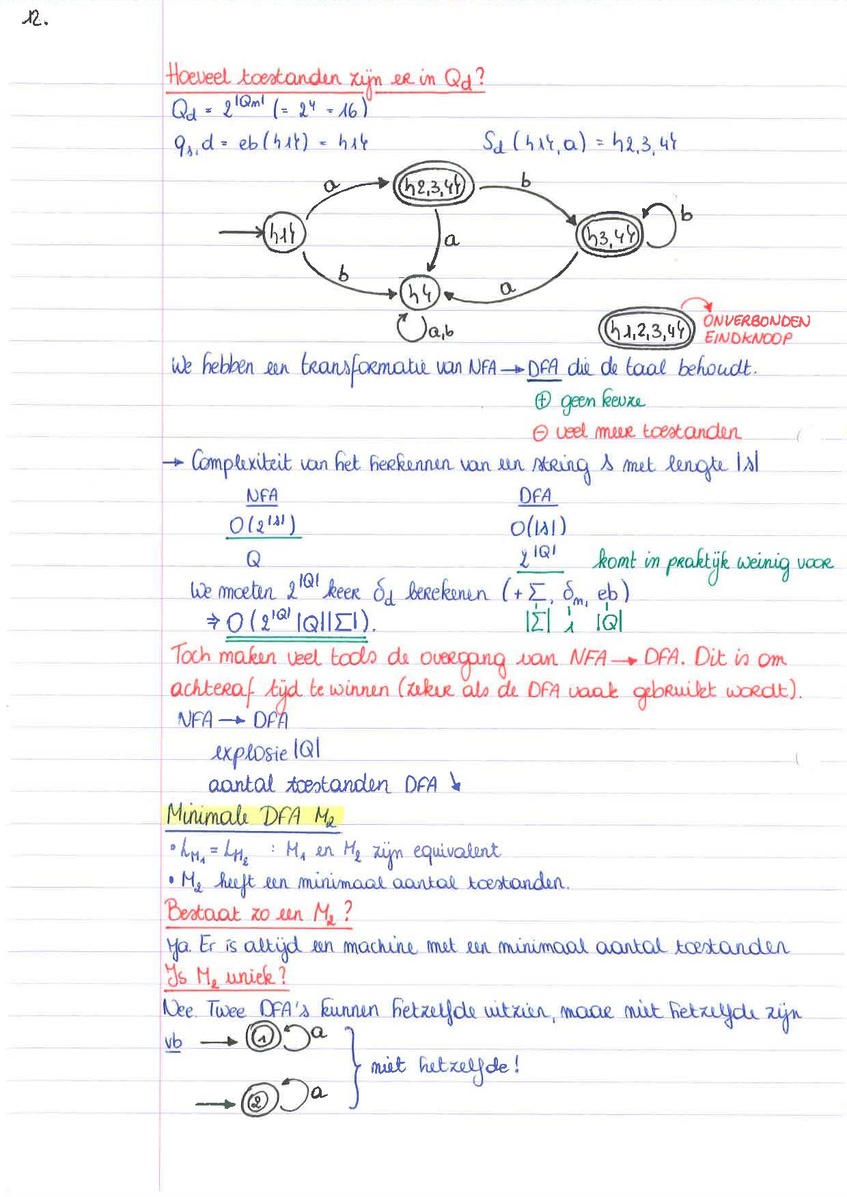 12.
Hoeveel toestanden zijn er in Qd?
Qd = 2^|Qm| (= 2^4 = 16)
qs,d = eb({1}) = {1} Sd({1}, a) = {2,3,4}
a {2,3,4} b
{1} a {3,4} b
b {} a
a,b {1,2,3,4} ONVERBONDEN
EINDKNOOP
We hebben een transformatie van NFA → DFA die de taal behoudt.
⊕ geen keuze
⊖ veel meer toestanden
→ Complexiteit van het herkennen van een string s met lengte |s|
NFA DFA
O(2^|s|) O(|s|)
Q 2^|Q| komt in praktijk weinig voor
We moeten 2^|Q| keer δd berekenen (+ Σ, δm, eb)
⇒ O(2^|Q| |Q||Σ|). |Σ| 1 |Q|
Toch maken veel tools de overgang van NFA → DFA. Dit is om
achteraf tijd te winnen (zeker als de DFA vaak gebruikt wordt).
NFA → DFA
explosie |Q|
aantal toestanden DFA ↓
Minimale DFA M2
• LM1 = LM2 : M1 en M2 zijn equivalent
• M2 heeft een minimaal aantal toestanden.
Bestaat zo een M2?
Ja. Er is altijd een machine met een minimaal aantal toestanden
Is M2 uniek?
Nee. Twee DFA's kunnen hetzelfde uitzien, maar niet hetzelfde zijn
vb → 1 a
} niet hetzelfde!
→ 2 a